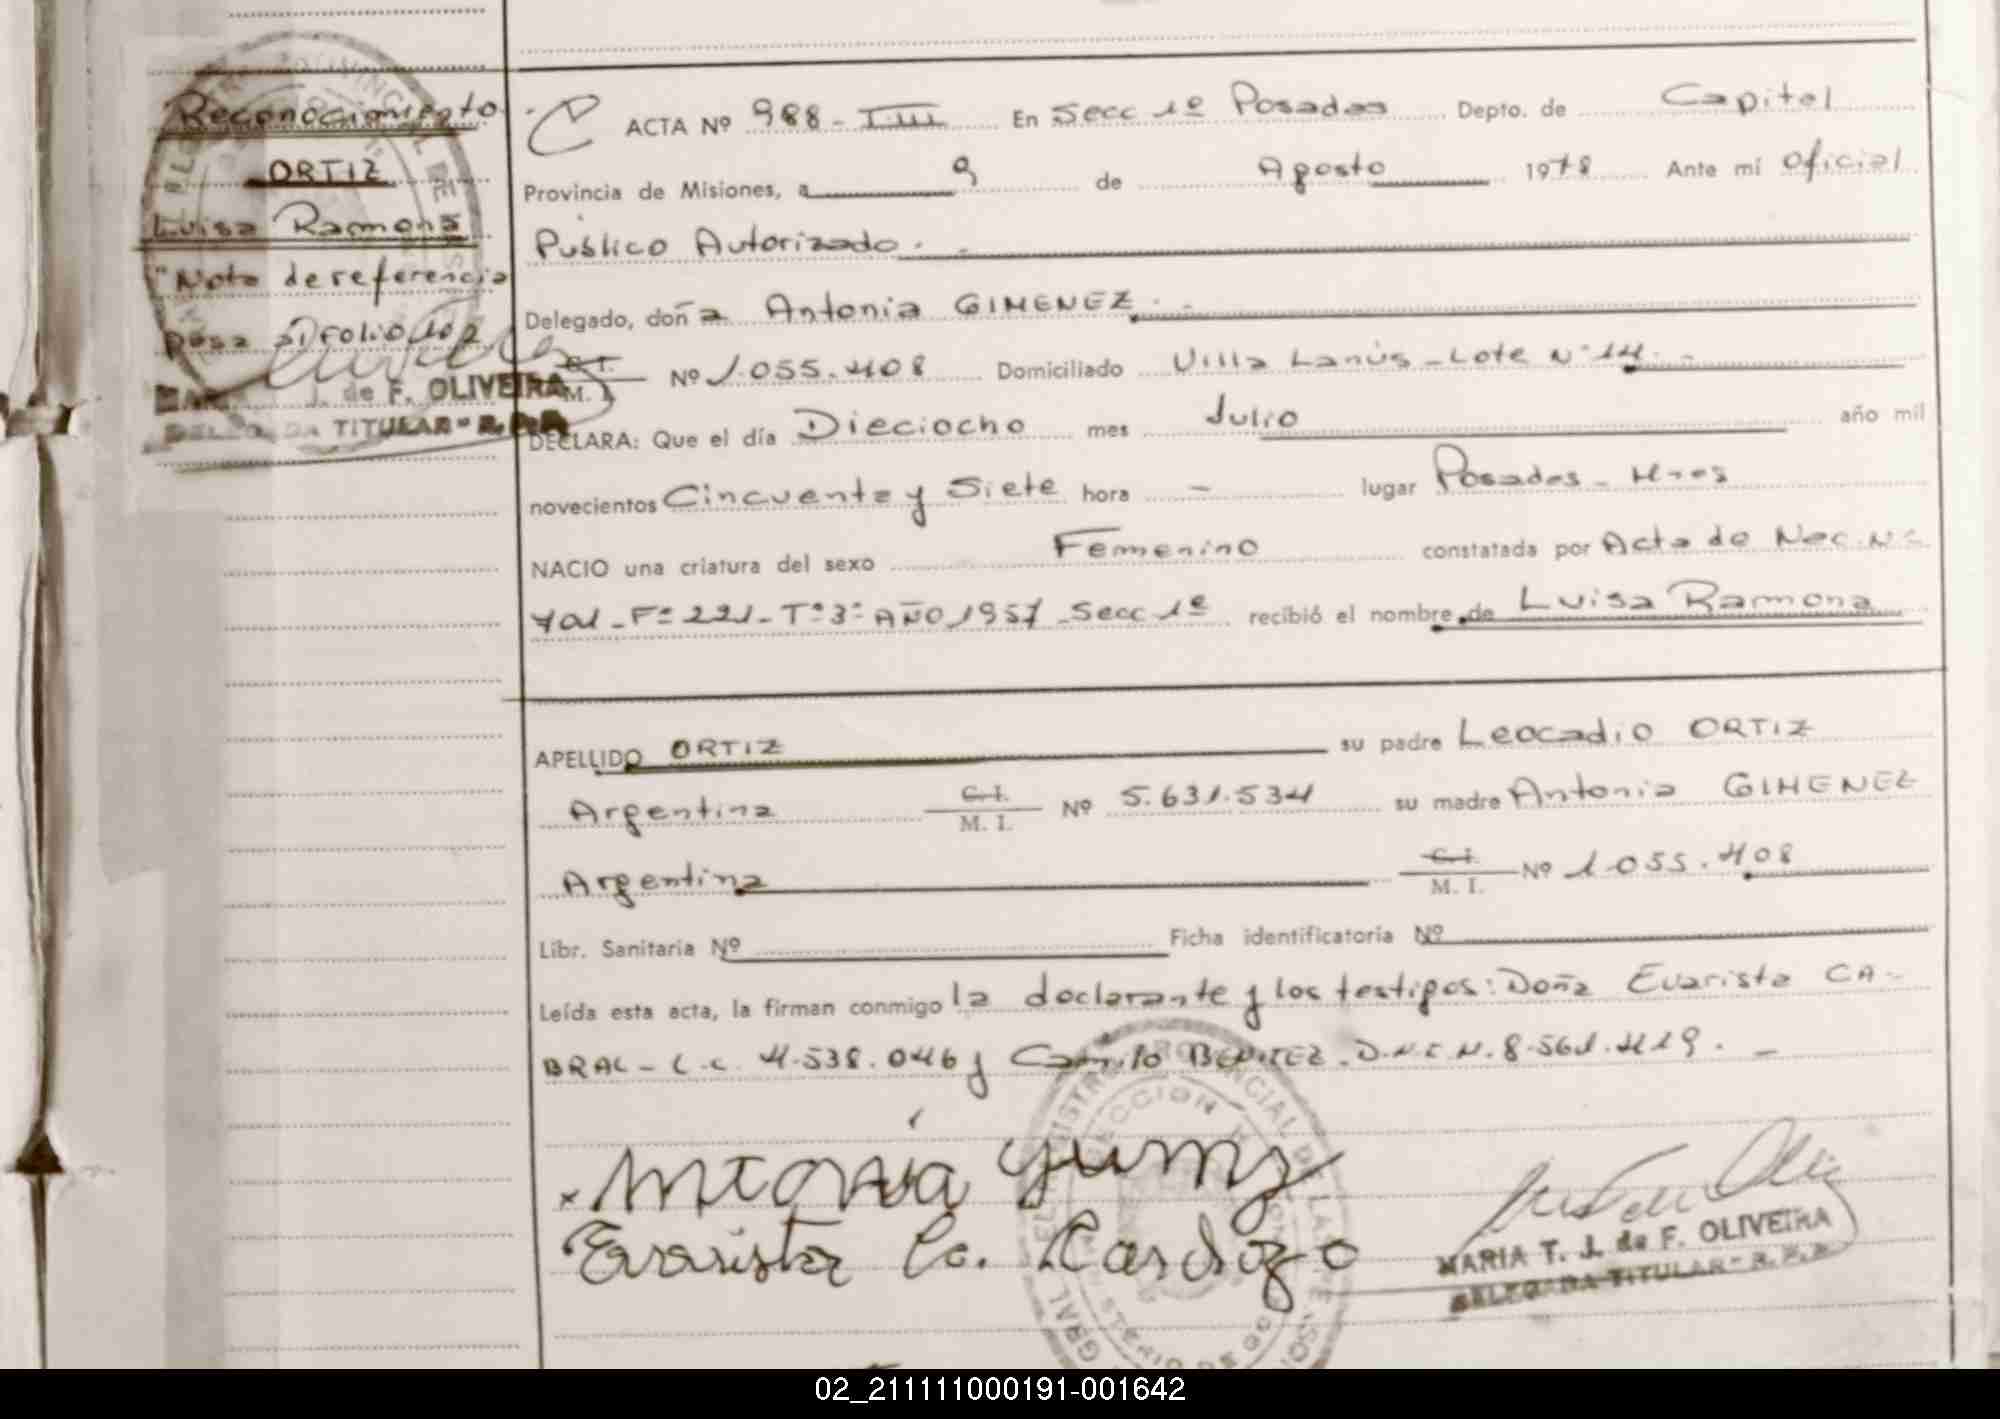 Reconocimiento
ORTIZ
Luisa Ramona
"Nota de referencia
pasa a folio 102
J. de F. OLIVEIRA
TITULAR - R.P.P.
ACTA Nº 988 - T III En Secc 1º Posadas Depto. de Capital
Provincia de Misiones, a 9 de Agosto 1978 Ante mí Oficial
Público Autorizado. -
Delegado, doña Antonia GIMENEZ. -
C.I. M. I. Nº 1.055.408 Domiciliado Villa Lanús - Lote Nº 14. -
DECLARA: Que el día Dieciocho mes Julio año mil
novecientos Cincuenta y Siete hora - lugar Posadas - Mnes
NACIO una criatura del sexo Femenino constatada por Acta de Nac. Nº
701 - Fº 221 - Tº 3º AÑO 1957 - Secc 1º recibió el nombre de Luisa Ramona
APELLIDO ORTIZ su padre Leocadio ORTIZ
Argentina C.I. M. I. Nº 5.631.534 su madre Antonia GIMENEZ
Argentina C.I. M. I. Nº 1.055.408
Libr. Sanitaria Nº Ficha identificatoria Nº
Leída esta acta, la firman conmigo la declarante y los testigos: Doña Evarista CA-
BRAL - L.C. 4.538.046 y Camilo BENITEZ - D.N.I. N. 8.561.419. -
Antonia
Evarista Ca. Cardozo
MARIA T. J. de F. OLIVEIRA
DELEGADA TITULAR - R.P.P.
02_211111000191-001642